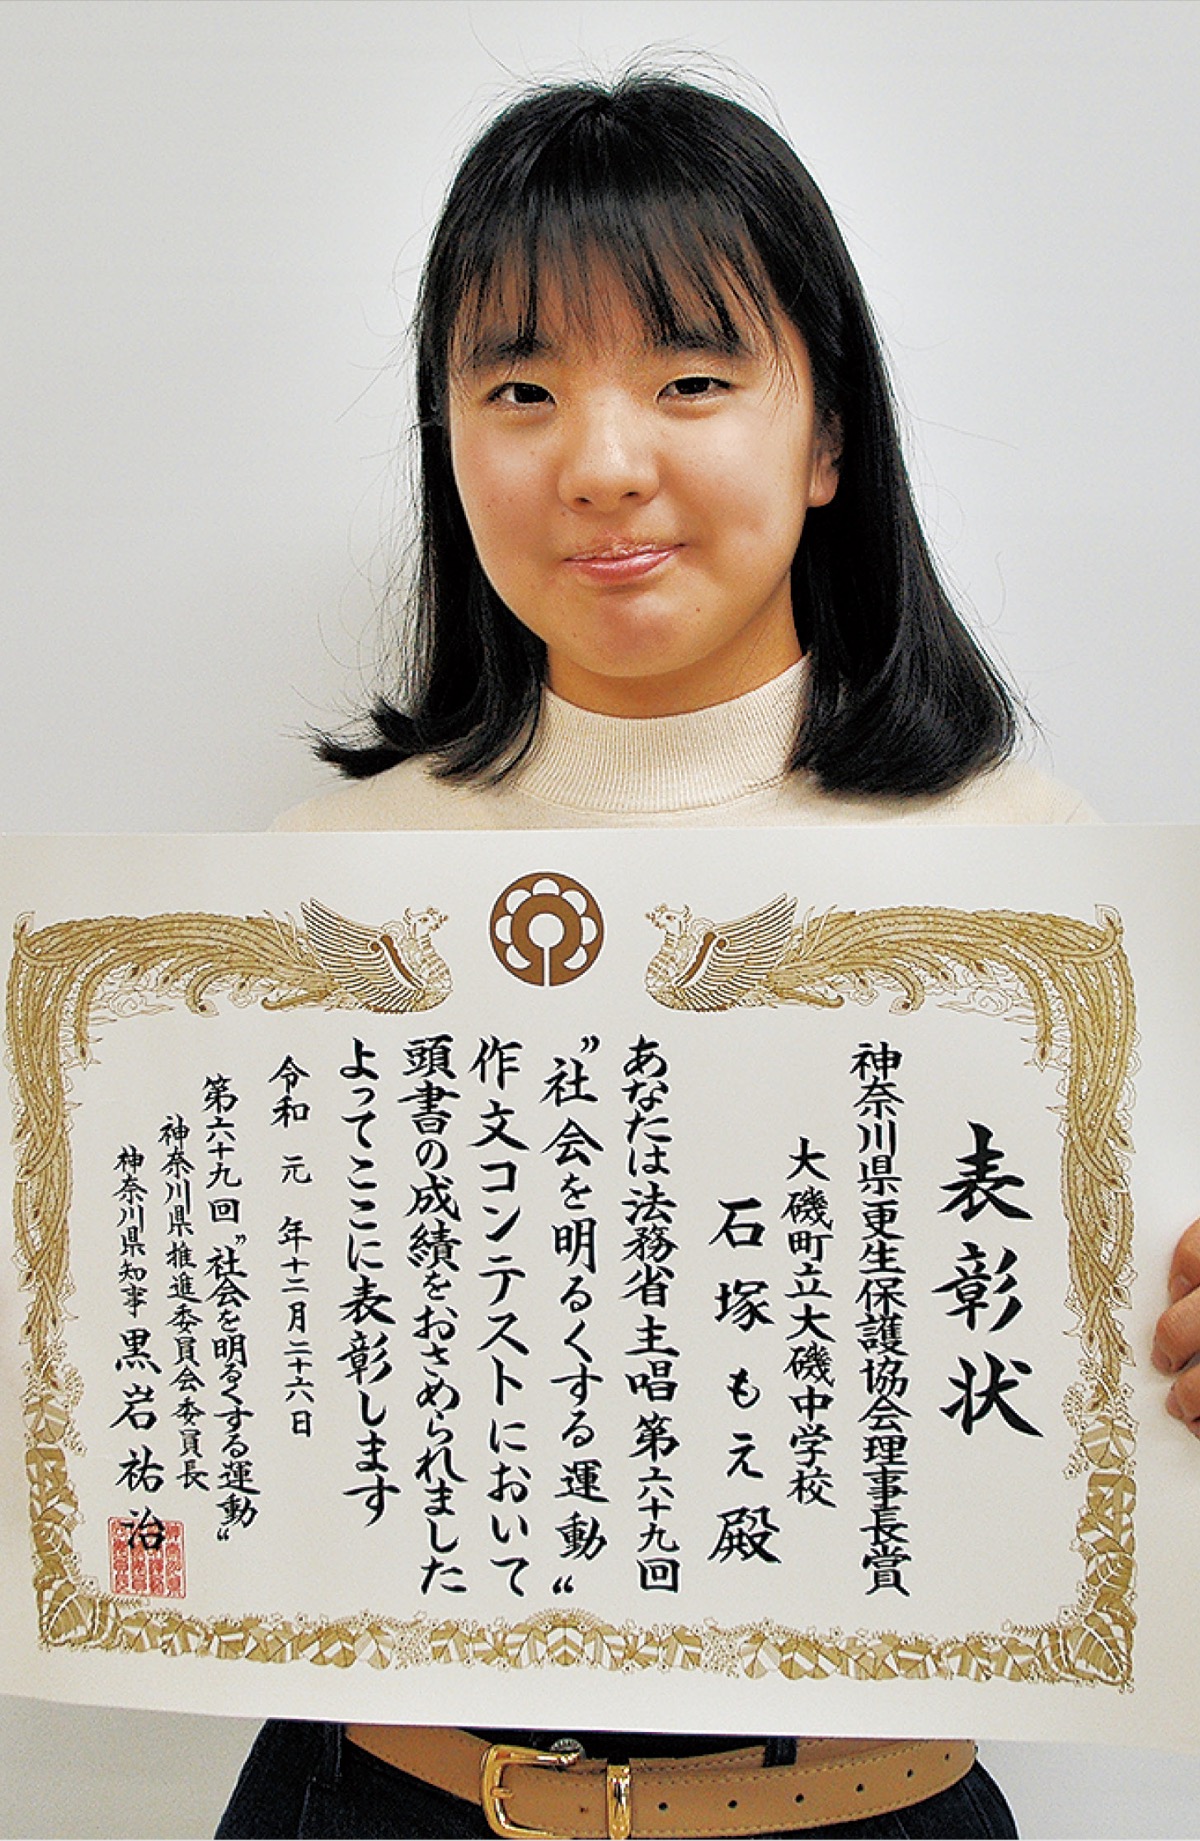 表彰状
神奈川県更生保護協会理事長賞
大磯町立大磯中学校
石塚もえ殿
あなたは法務省主唱第六十九回
〝社会を明るくする運動〟
作文コンテストにおいて
頭書の成績をおさめられました
よってここに表彰します
令和元年十二月二十六日
第六十九回〝社会を明るくする運動〟
神奈川県推進委員会委員長
神奈川県知事 黒岩祐治